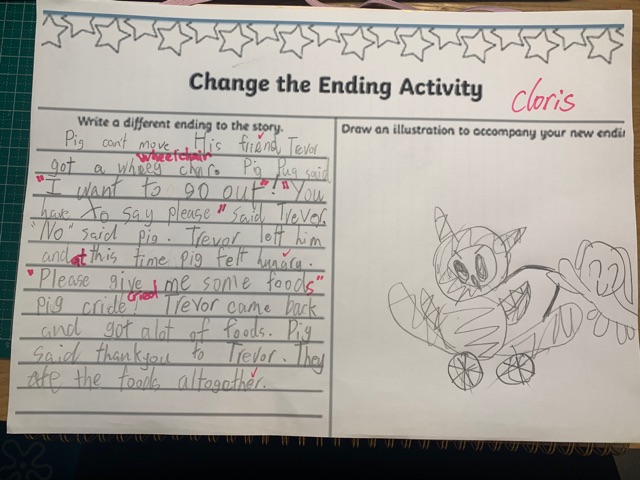 Change the Ending Activity
cloris
Write a different ending to the story.
Pig can't move. His friend Trevor
got a wheey chair. Pig Pug said
wheelchair
"I want to go out"! "You
have to say please" said Trevor.
"No" said pig. Trevor left him
and at this time pig felt hungry.
"Please give me some foods"
pig cride! Trevor came back
cried
and got alot of foods. Pig
said thankyou to Trevor. They
ate the foods altogether.
Draw an illustration to accompany your new endin